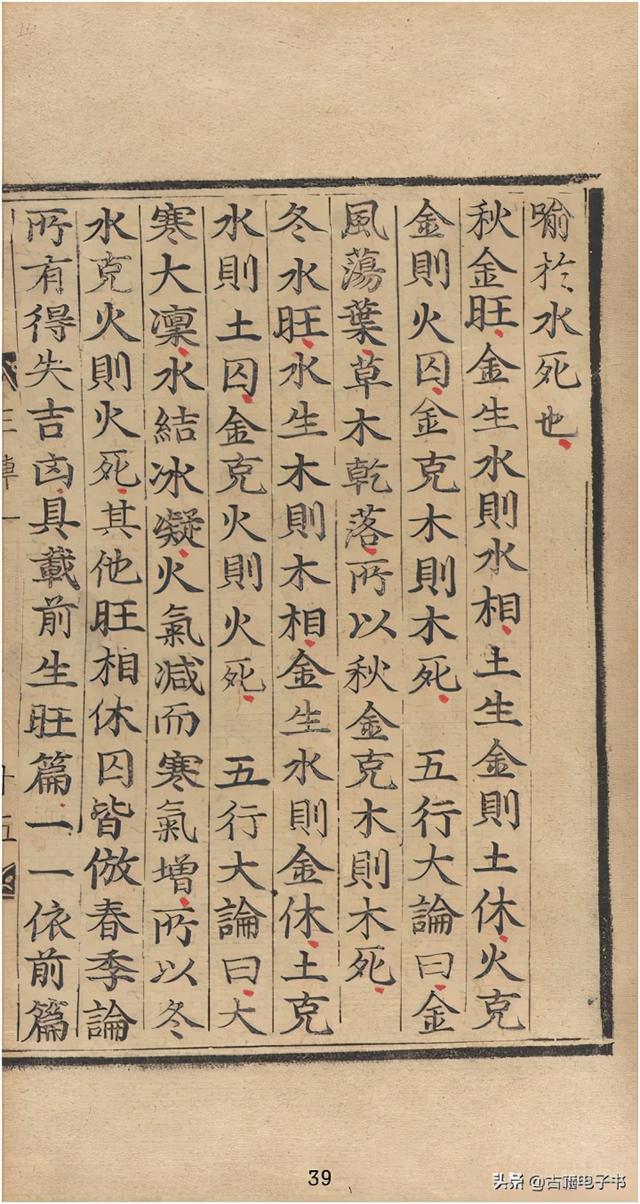 喻於水死也
秋金旺金生水則水相土生金則土休火克
金則火囚金克木則木死 五行大論曰金
風蕩葉草木乾落所以秋金克木則木死
冬水旺水生木則木相金生水則金休土克
水則土囚金克火則火死 五行大論曰大
寒大凜水結冰凝火氣减而寒氣增所以冬
水克火則火死其他旺相休囚皆倣春季論
所有得失吉凶具載前生旺篇一一依前篇
39
头条 @古籍电子书